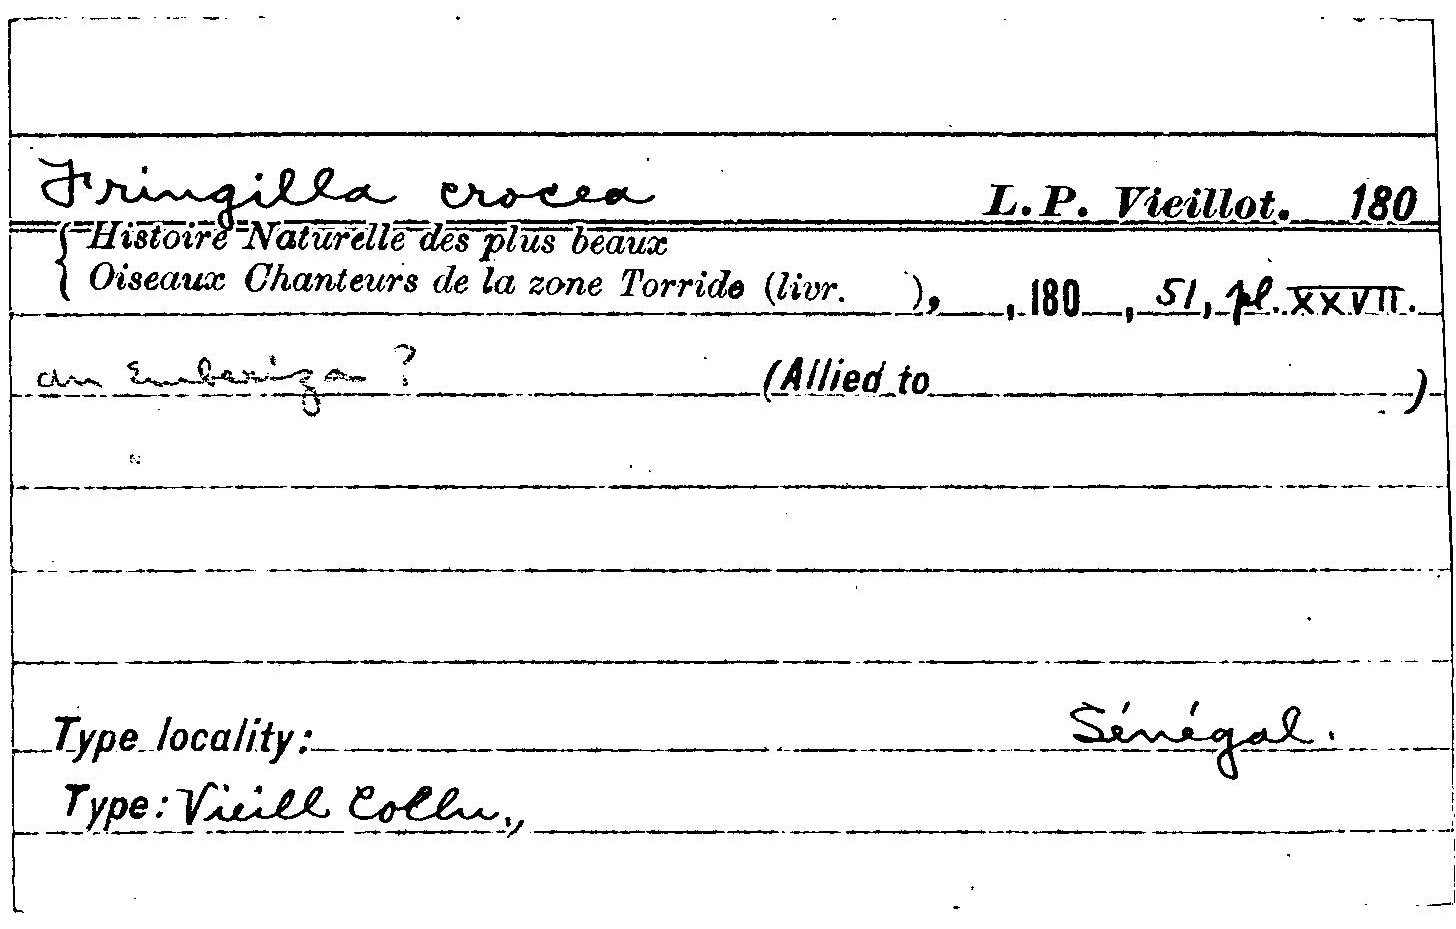 Fringilla crocea L. P. Vieillot. 180
Histoire Naturelle des plus beaux
Oiseaux Chanteurs de la zone Torride (livr. ), , 180 , 51, pl. XXVII.
an Emberiza ? (Allied to )
Type locality: Sénégal.
Type: Vieill Colln.,